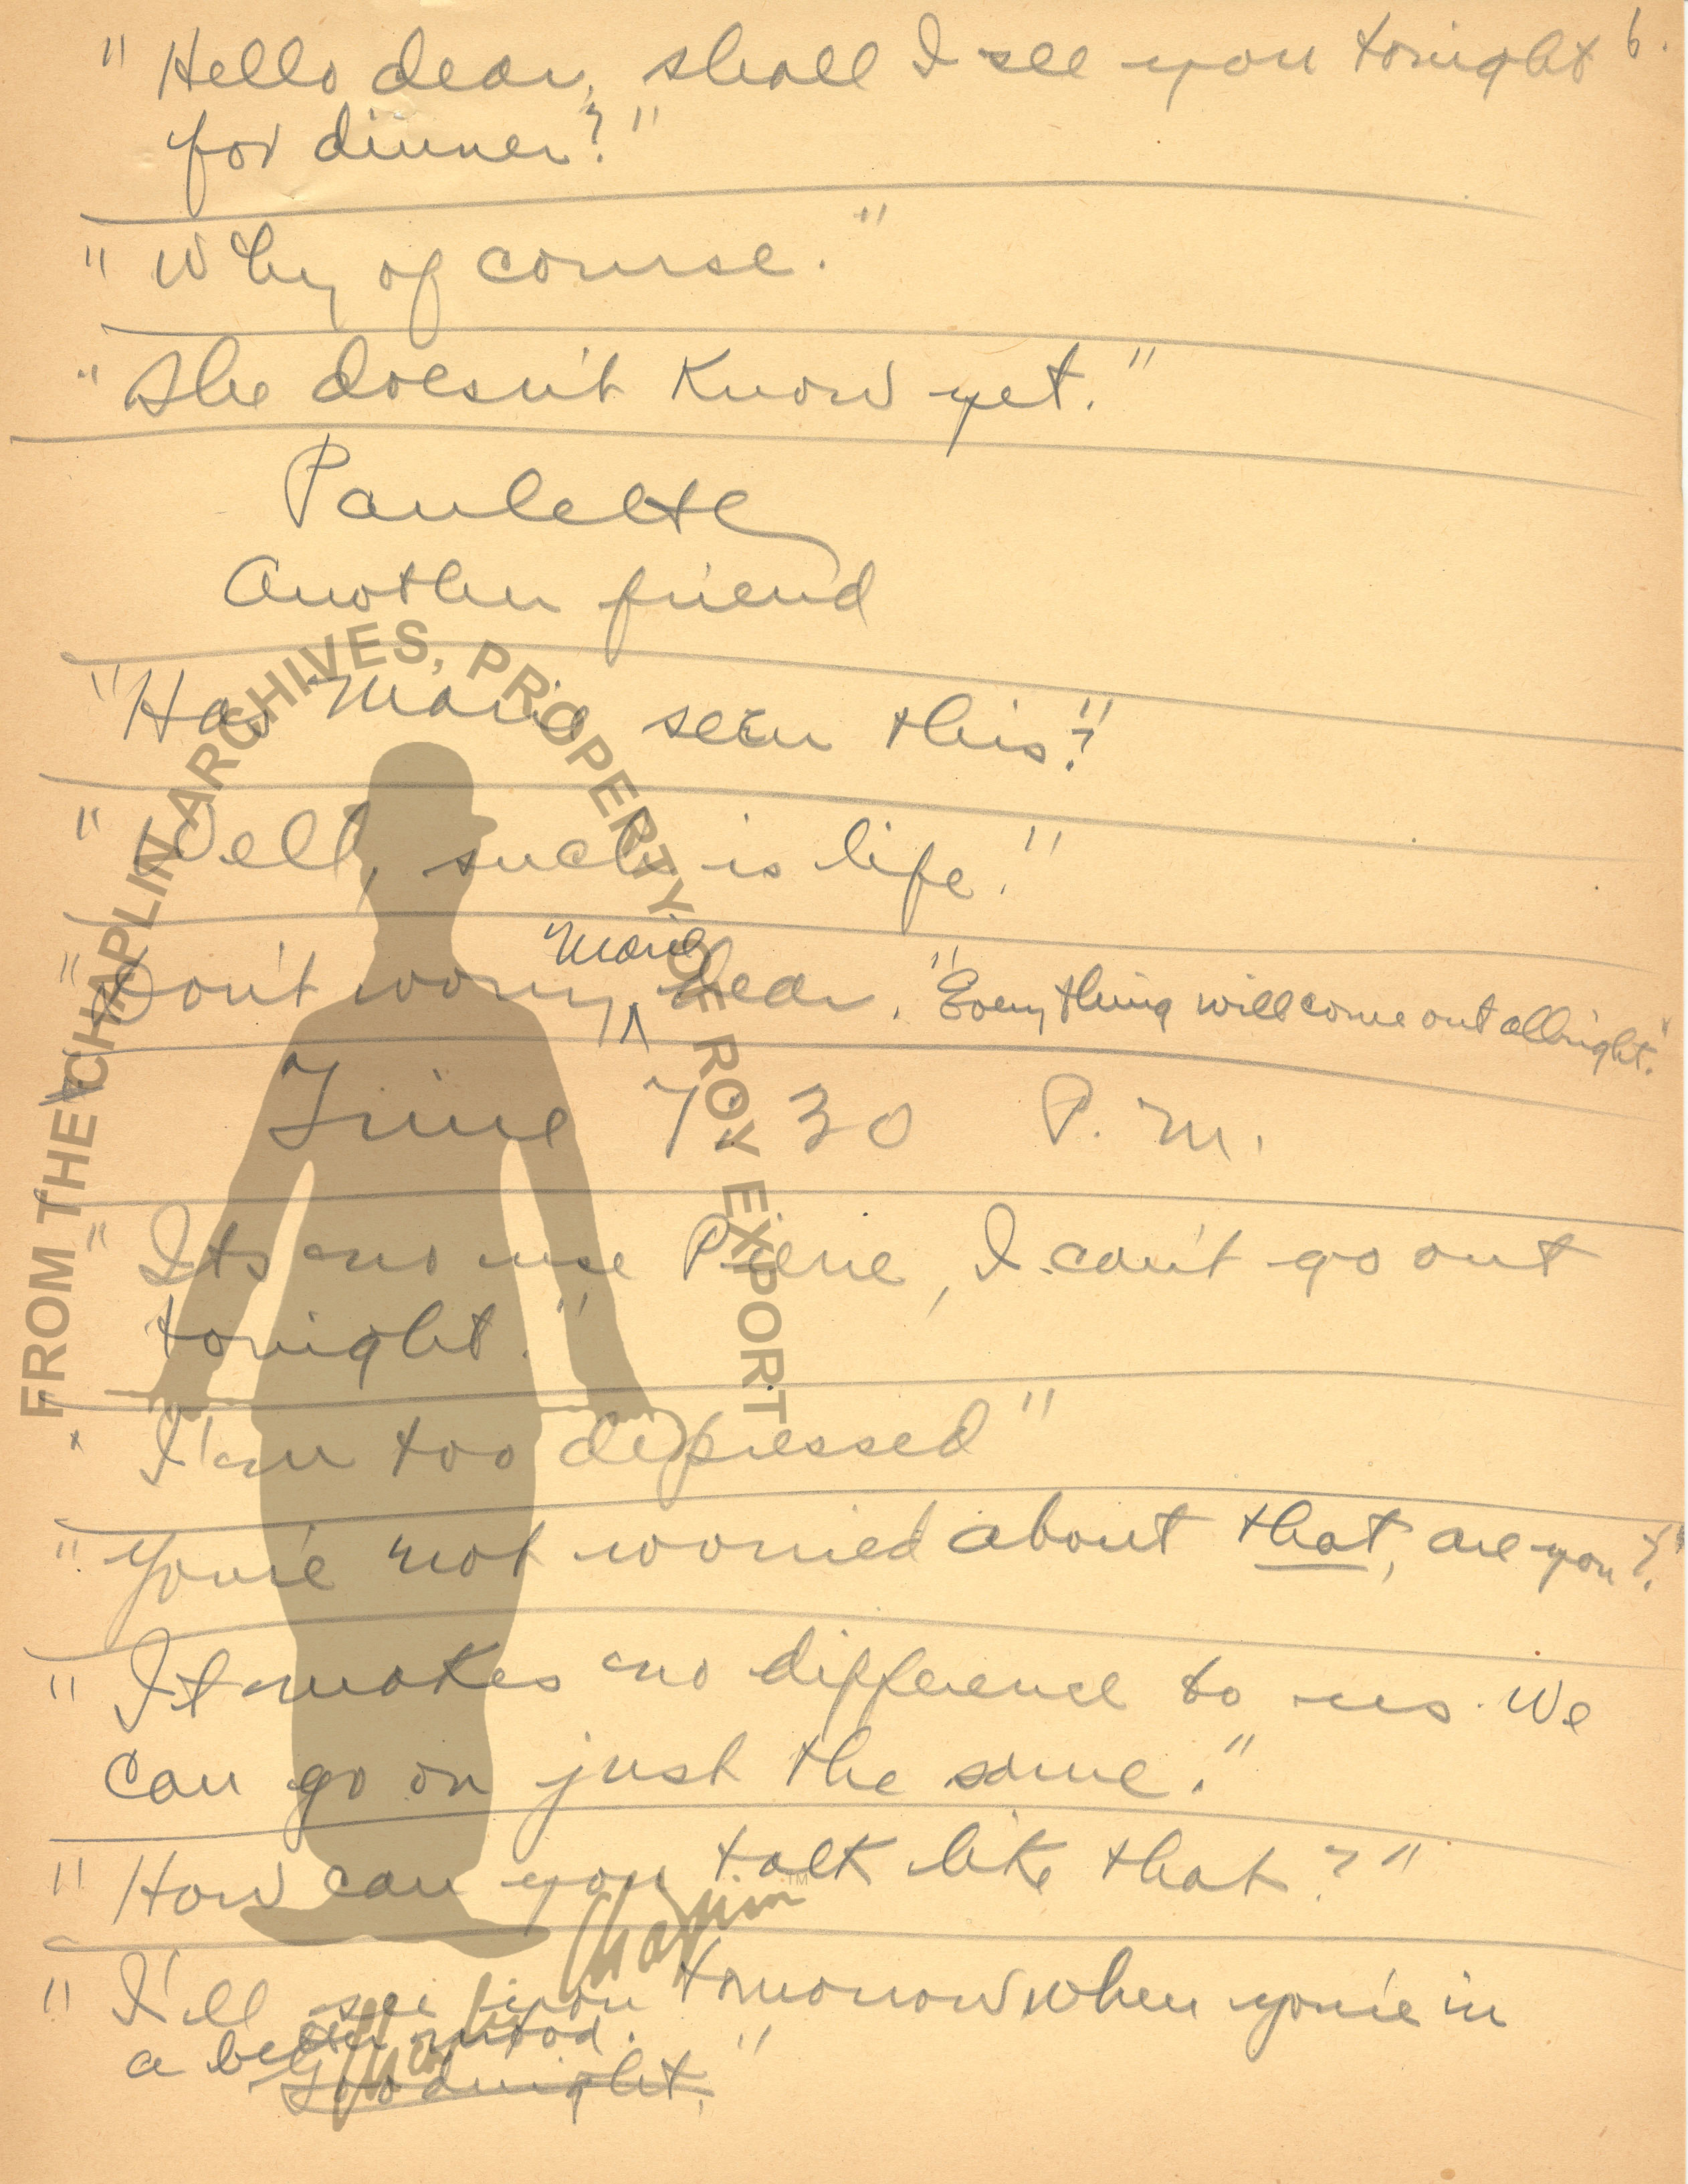 6.
" Hello dear, shall I see you tonight
for dinner?"
" Why of course."
" She doesn't know yet."
Paulette
Another friend
"Has Marie seen this?"
" Well, such is life."
"Don't worry Marie dear. "Everything will come out allright."
Time 7:30 P.M.
" Its no use Pierre, I can't go out
tonight."
" I'am too depressed"
" You're not worried about that, are you?"
" It makes no difference to us. We
can go on just the same."
" How can you talk like that?"
" I'll see you tomorrow when you're in
a better mood. "
Goodnight.
FROM THE CHAPLIN ARCHIVES, PROPERTY OF ROY EXPORT
Charlie Chaplin TM